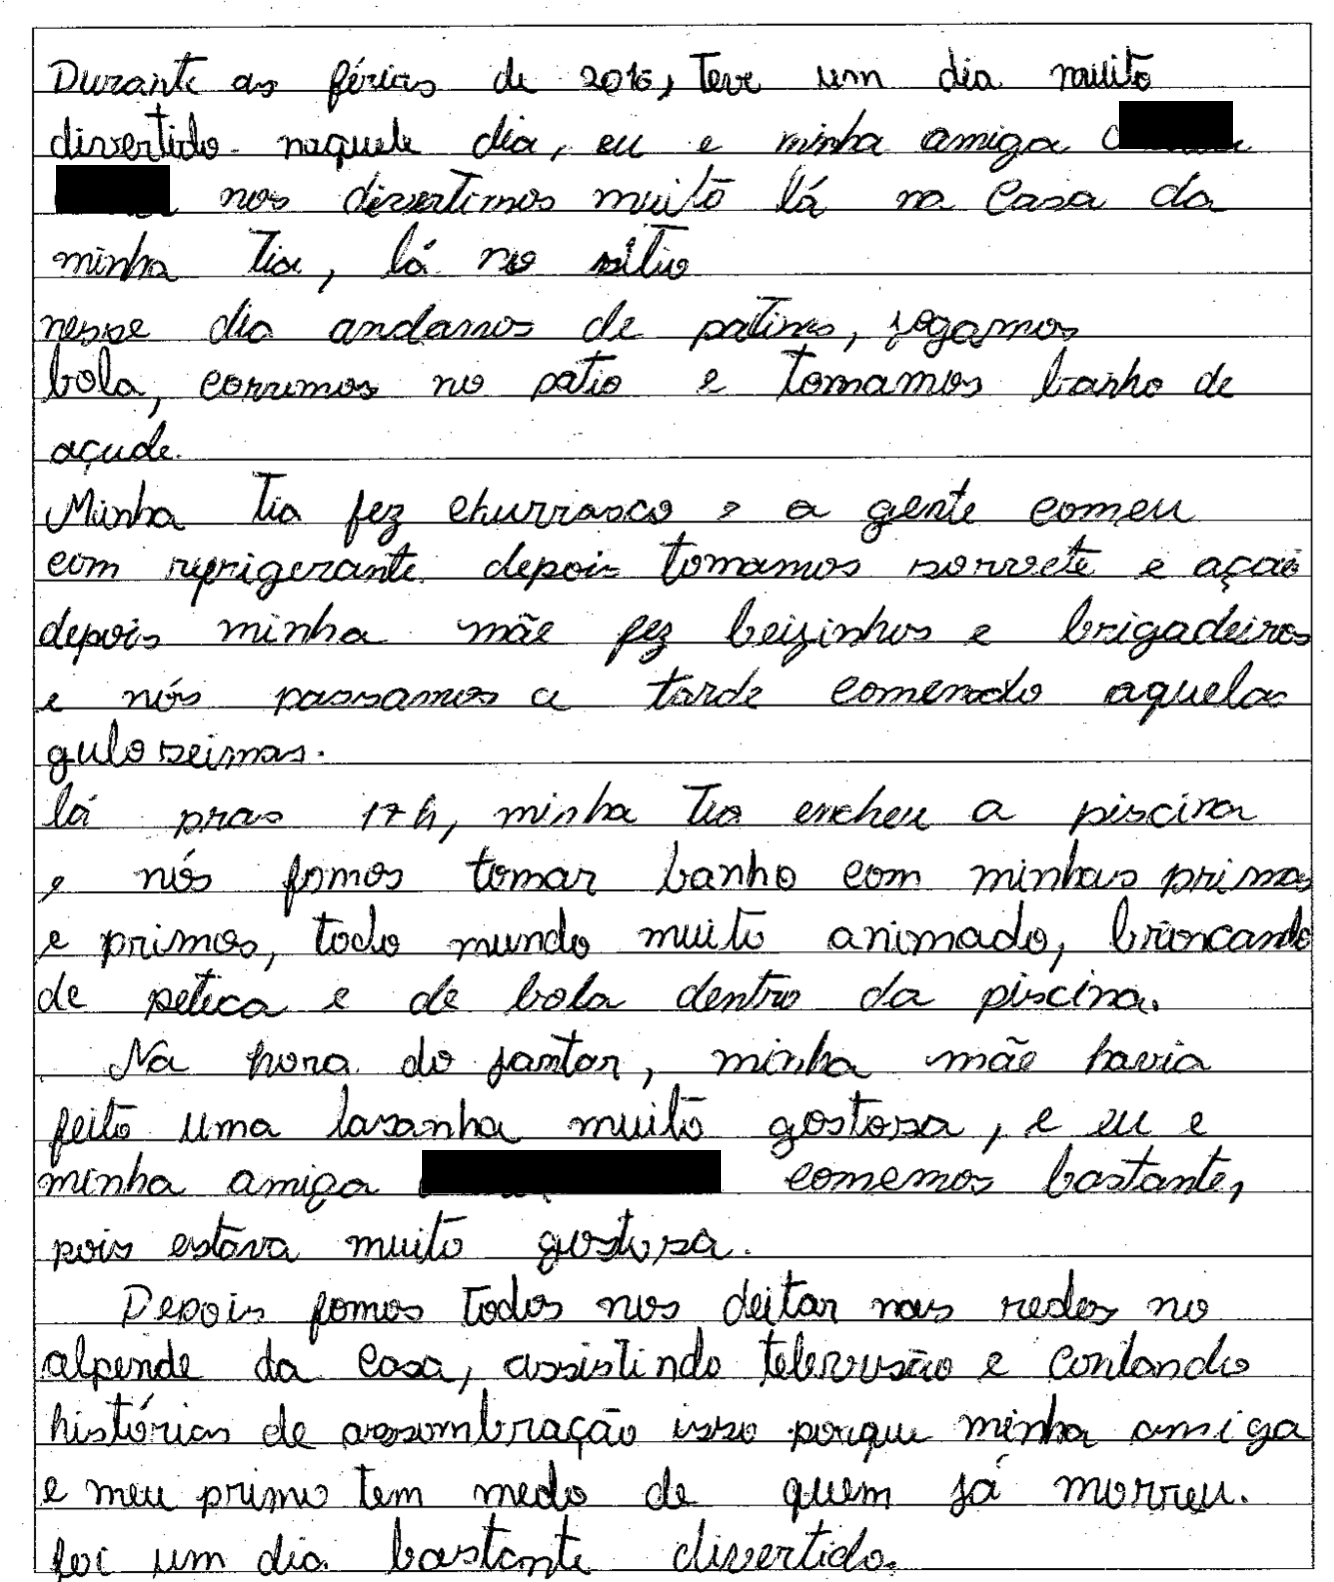 Durante as férias de 2016, teve um dia muito
divertido. naquele dia, eu e minha amiga
nos divertimos muito lá na casa da
minha tia, lá no sítio
nesse dia andamos de patins, jogamos
bola, corremos no patio e tomamos banho de
açude.
Minha tia fez churrasco e a gente comeu
com refrigerante depois tomamos sorvete e açai
depois minha mãe fez beizinhos e brigadeiros
e nós passamos a tarde comendo aquelas
guloseimas.
lá pras 17h, minha tia encheu a piscina
e nós fomos tomar banho com minhas primas
e primos, todo mundo muito animado, brincando
de peteca e de bola dentro da piscina.
Na hora do jantar, minha mãe havia
feito uma lasanha muito gostosa, e eu e
minha amiga comemos bastante,
pois estava muito gostosa.
Depois fomos todos nos deitar nas redes no
alpende da casa, assistindo televisão e contando
histórias de assombração isso porque minha amiga
e meu primo tem medo de quem já morreu.
foi um dia bastante divertido.